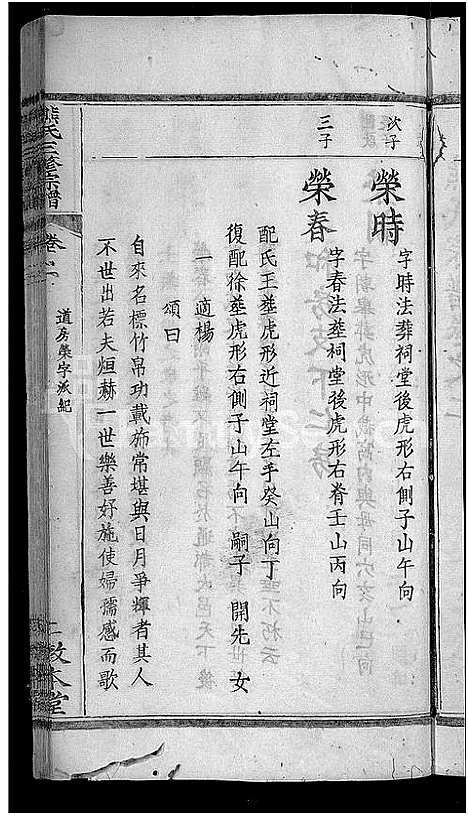 次子
榮時
字時法葬祠堂後虎形右側子山午向
三子
榮春
字春法塟祠堂後虎形右脊壬山丙向
配氏王塟虎形近祠堂左手癸山向丁
復配徐塟虎形右側子山午向 嗣子 開先 女
一 適楊
頌曰
自來名標竹帛功載旂常堪與日月爭輝者其人
不世出若夫烜赫一世樂善好施使婦孺感而歌
熊氏三修宗譜
卷之二
道房榮字派紀
敦本堂